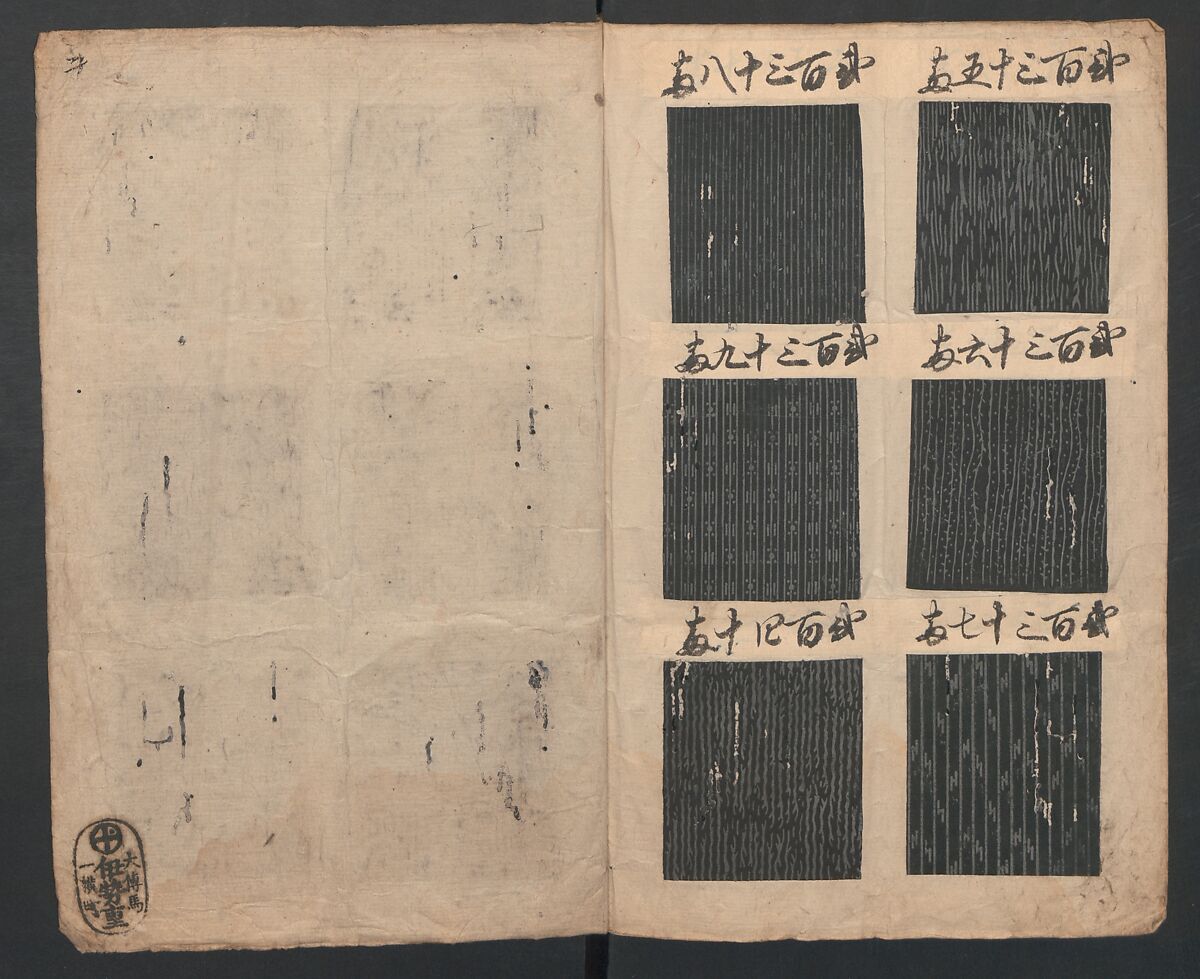 弐百三十五番
弐百三十六番
弐百三十七番
弐百三十八番
弐百三十九番
弐百四十番
大傳馬
伊勢重
一横町